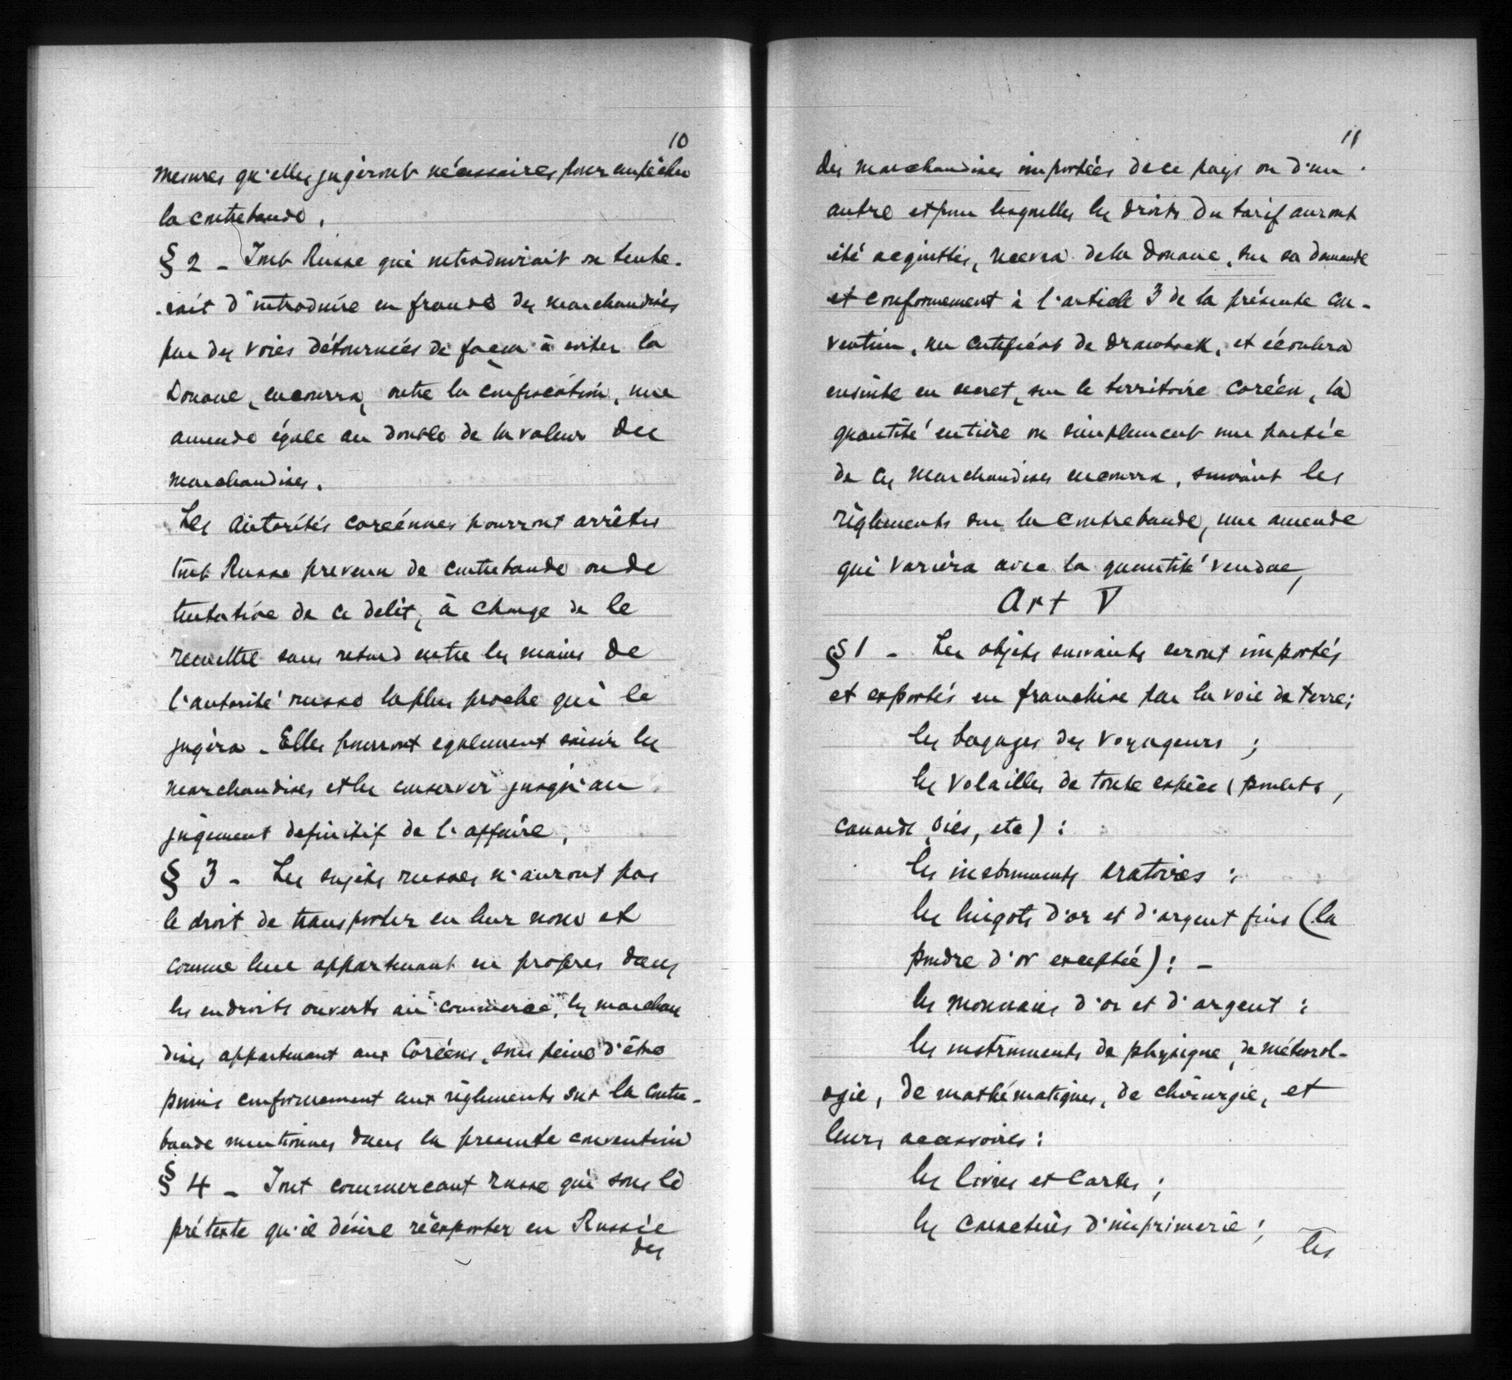 10
mesures qu'elles jugeront nécessaires pour empêcher
la contrebande.
§ 2 - Tout Russe qui introduirait ou tente-
-rait d'introduire en fraude des marchandises
par des voies détournées de façon à eviter la
Douane, encourra, outre la confiscation, une
amende égale au double de la valeur des
marchandises.
Les autorités coréennes pourront arrêter
tout Russe prevenu de contrebande ou de
tentative de ce delit, à charge de le
remettre sans retard entre les mains de
l'autorité russe la plus proche qui le
jugera - Elles pourront egalement saisir les
marchandises et les conserver jusqu'au
jugement definitif de l'affaire.
§ 3 - Les sujets russes n'auront pas
le droit de transporter en leur nom et
comme leur appartenant en propres dans
les endroits ouverts au commerce, les marchan
dises appartenant aux Coréens, sous peine d'être
punis conformement aux règlements sur la contre-
bande mentionnés dans la presente convention
§ 4 - Tout commercant russe qui sous le
prétexte qu'il désire réexporter en Russie
des
11
des marchandises importées de ce pays ou d'un
autre et pour lesquelles les droits du tarif auront
été acquittés, recevra de la Douane, sur sa demande
et conformement à l'article 3 de la présente con-
vention, un certificat de drawback, et écoulera
ensuite en secret, sur le territoire coréen, la
quantité entière ou simplement une partie
de ces marchandises encourra, suivant les
règlements sur la contrebande, une amende
qui variera avec la quantité vendue,
Art V
§ 1 - Les objets suivants seront importés
et exportés en franchise par la voie de terre;
les bagages des voyageurs ;
les volailles de toute espèce (poulets,
canards, oies, etc) :
les instruments aratoires :
les lingots d'or et d'argent fins (la
poudre d'or exceptée) : -
les monnaies d'or et d'argent :
les instruments de physique, de météorol-
ogie, de mathématiques, de chirurgie, et
leurs accessoires :
les livres et cartes ;
les caractères d'imprimerie ;
les